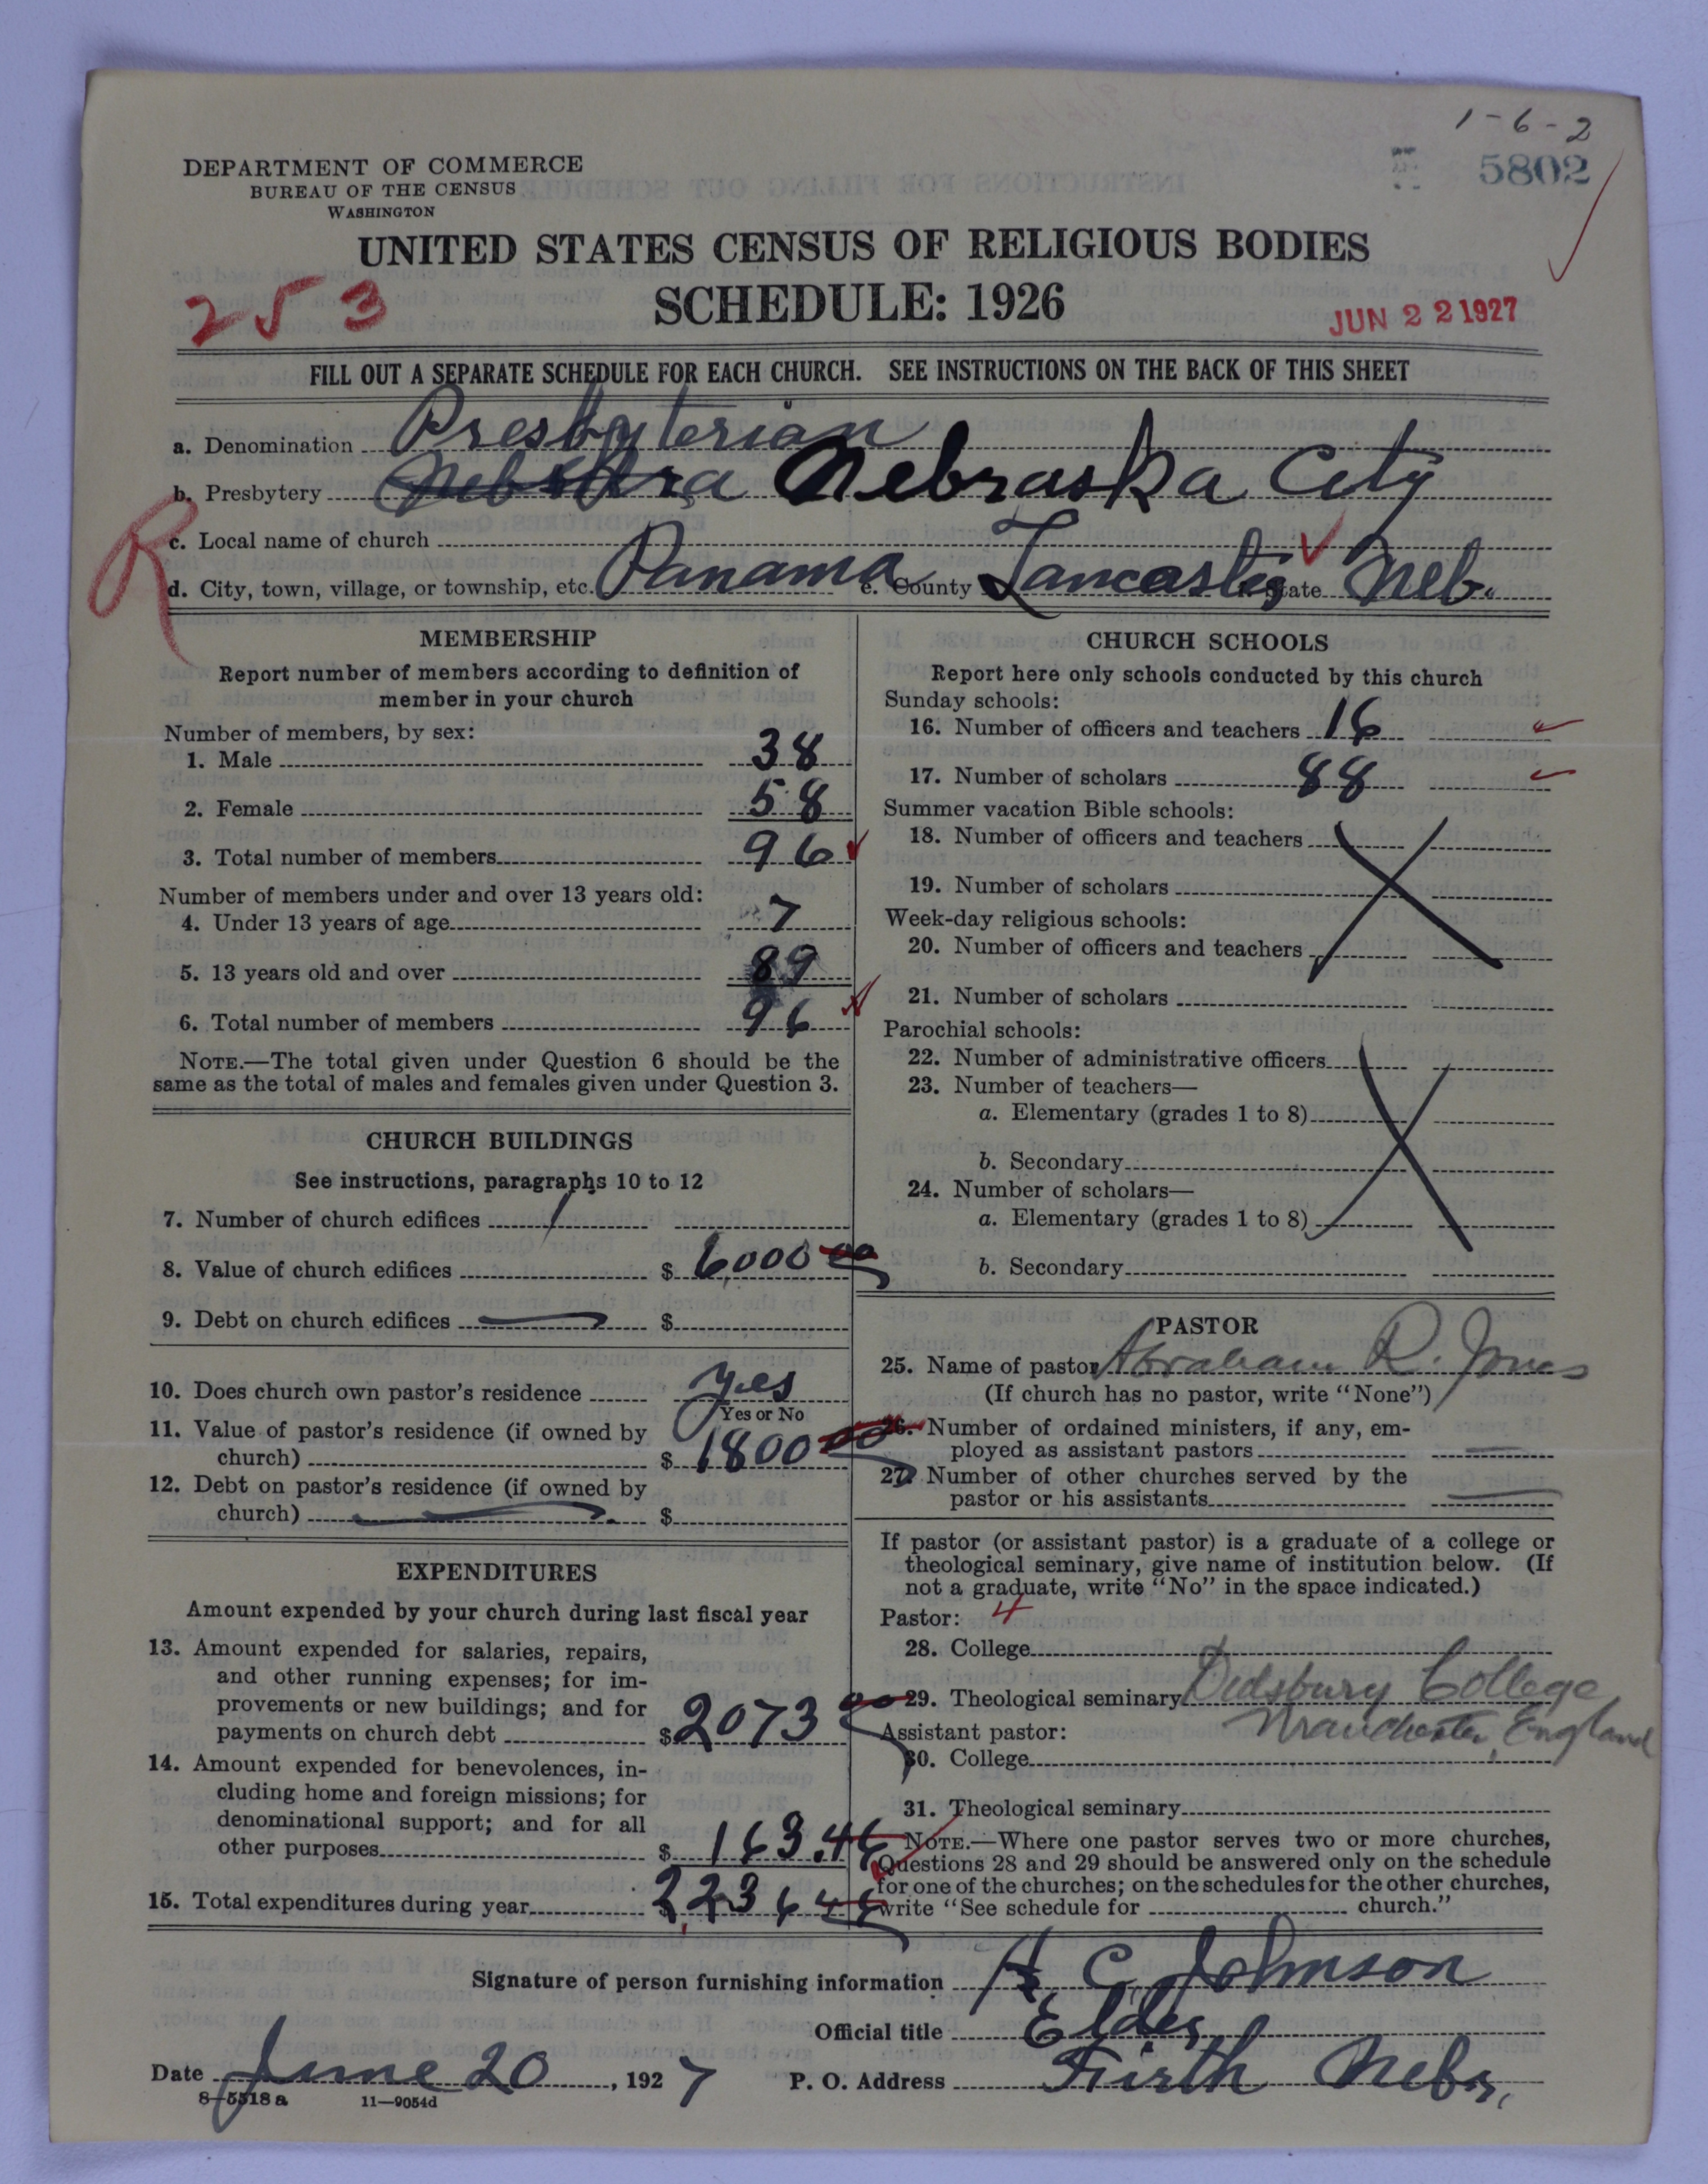 1-6-2
5802
DEPARTMENT OF COMMERCE
BUREAU OF THE CENSUS
WASHINGTON
UNITED STATES CENSUS OF RELIGIOUS BODIES
SCHEDULE: 1926
253
JUN 22 1927
FILL OUT A SEPARATE SCHEDULE FOR EACH CHURCH. SEE INSTRUCTIONS ON THE BACK OF THIS SHEET
a. Denomination Presbyterian
b. Presbytery Nebraska City
R
c. Local name of church
d. City, town, village, or township, etc. Panama e. County Lancaster State Neb.
MEMBERSHIP
Report number of members according to definition of
member in your church
Number of members, by sex:
1. Male 38
2. Female 58
3. Total number of members 96
Number of members under and over 13 years old:
4. Under 13 years of age 7
5. 13 years old and over 89
6. Total number of members 96
NOTE.—The total given under Question 6 should be the
same as the total of males and females given under Question 3.
CHURCH BUILDINGS
See instructions, paragraphs 10 to 12
7. Number of church edifices 1
8. Value of church edifices $ 6,000 00
9. Debt on church edifices — $
10. Does church own pastor's residence yes
Yes or No
11. Value of pastor's residence (if owned by
church) $ 1800 00
12. Debt on pastor's residence (if owned by
church) — $
EXPENDITURES
Amount expended by your church during last fiscal year
13. Amount expended for salaries, repairs,
and other running expenses; for im-
provements or new buildings; and for
payments on church debt $ 2073 00
14. Amount expended for benevolences, in-
cluding home and foreign missions; for
denominational support; and for all
other purposes $ 163.46
15. Total expenditures during year 2,236 46
CHURCH SCHOOLS
Report here only schools conducted by this church
Sunday schools:
16. Number of officers and teachers 16
17. Number of scholars 88
Summer vacation Bible schools:
18. Number of officers and teachers
19. Number of scholars
Week-day religious schools:
20. Number of officers and teachers
21. Number of scholars
Parochial schools:
22. Number of administrative officers
23. Number of teachers—
a. Elementary (grades 1 to 8)
b. Secondary
24. Number of scholars—
a. Elementary (grades 1 to 8)
b. Secondary
PASTOR
25. Name of pastor Abraham R. Jones
(If church has no pastor, write "None")
26. Number of ordained ministers, if any, em-
ployed as assistant pastors —
27. Number of other churches served by the
pastor or his assistants —
If pastor (or assistant pastor) is a graduate of a college or
theological seminary, give name of institution below. (If
not a graduate, write "No" in the space indicated.)
Pastor: 4
28. College
29. Theological seminary Didsbury College
Manchester, England
Assistant pastor:
30. College
31. Theological seminary
NOTE.—Where one pastor serves two or more churches,
Questions 28 and 29 should be answered only on the schedule
for one of the churches; on the schedules for the other churches,
write "See schedule for church."
Signature of person furnishing information H C Johnson
Official title Elder
Date June 20, 1927 P. O. Address Firth Nebr.
8-5518a 11-9054d